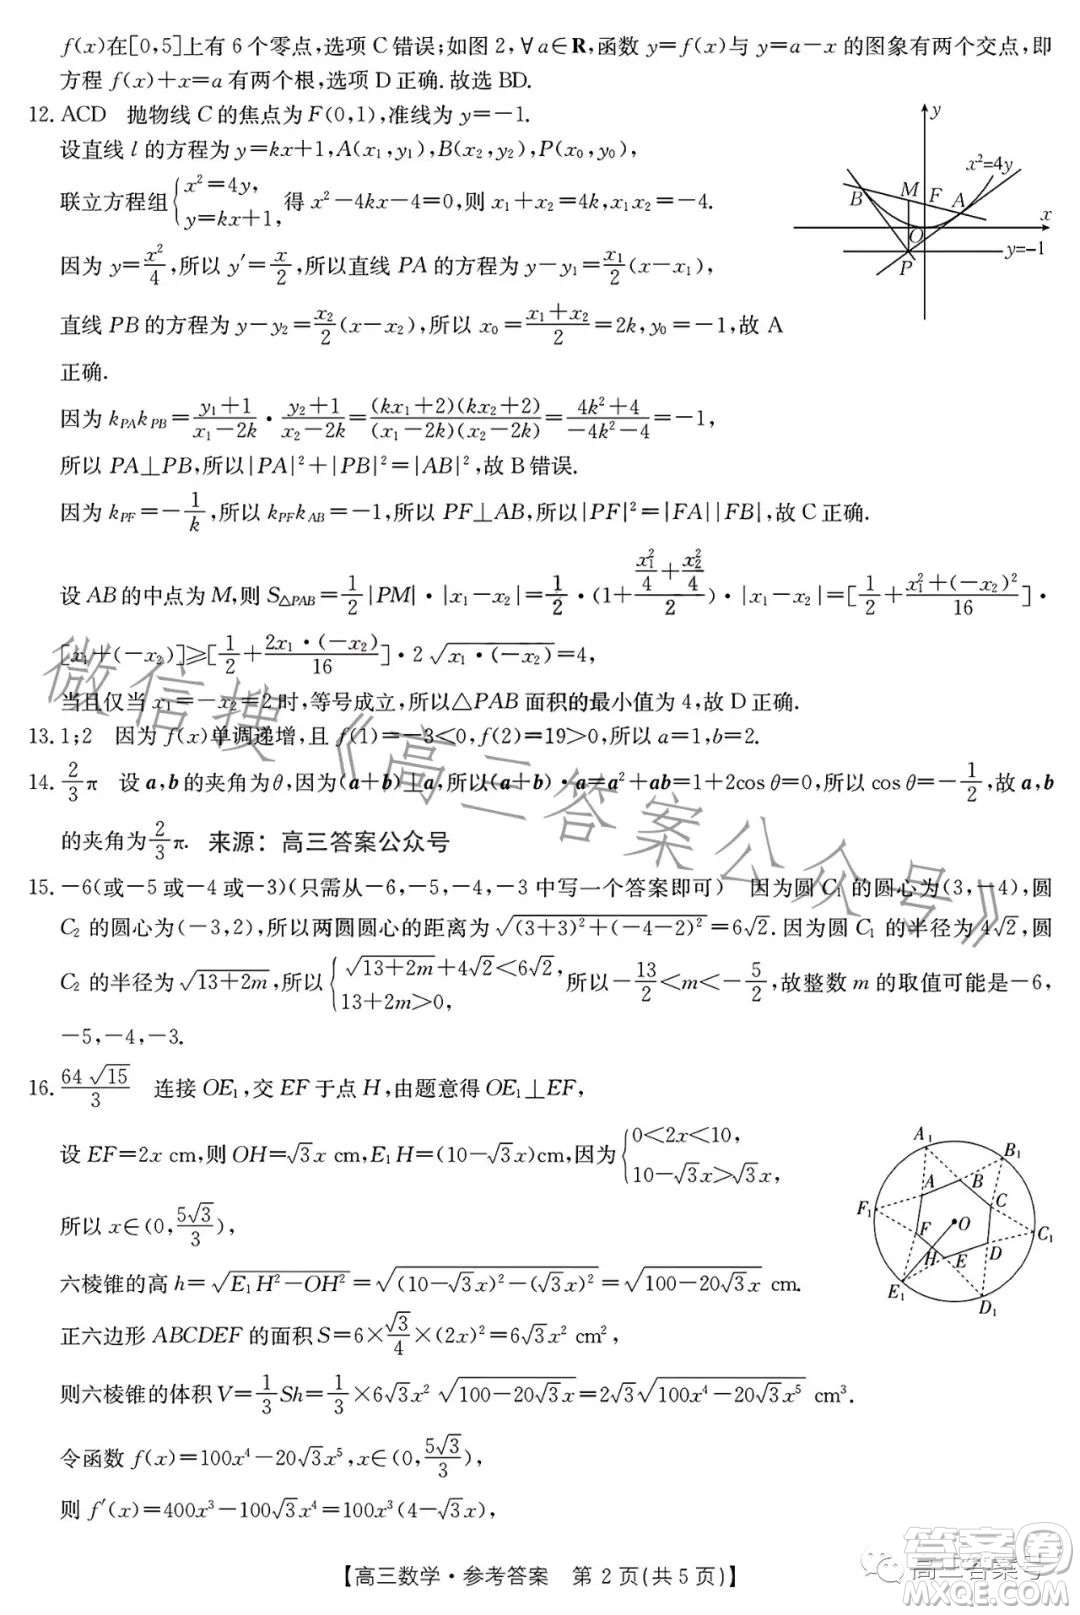 f(x)在[0,5]上有6个零点,选项C错误;如图2,∀a∈R,函数y=f(x)与y=a-x的图象有两个交点,即
方程f(x)+x=a有两个根,选项D正确.故选BD.
12. ACD 抛物线C的焦点为F(0,1),准线为y=-1.
设直线l的方程为y=kx+1,A(x₁,y₁),B(x₂,y₂),P(x₀,y₀),
联立方程组{x²=4y, y=kx+1, 得x²-4kx-4=0,则x₁+x₂=4k,x₁x₂=-4.
因为y=x²/4,所以y′=x/2,所以直线PA的方程为y-y₁=x₁/2(x-x₁),
直线PB的方程为y-y₂=x₂/2(x-x₂),所以x₀=(x₁+x₂)/2=2k,y₀=-1,故A
正确.
因为k_PA k_PB=(y₁+1)/(x₁-2k)·(y₂+1)/(x₂-2k)=(kx₁+2)(kx₂+2)/(x₁-2k)(x₂-2k)=(4k²+4)/(-4k²-4)=-1,
所以PA⊥PB,所以|PA|²+|PB|²=|AB|²,故B错误.
因为k_PF=-1/k,所以k_PF k_AB=-1,所以PF⊥AB,所以|PF|²=|FA||FB|,故C正确.
设AB的中点为M,则S△PAB=1/2|PM|·|x₁-x₂|=1/2·(1+(x₁²/4+x₂²/4)/2)·|x₁-x₂|=[1/2+(x₁²+(-x₂)²)/16]·
[x₁+(-x₂)]≥[1/2+2x₁·(-x₂)/16]·2√(x₁·(-x₂))=4,
当且仅当x₁=-x₂=2时,等号成立,所以△PAB面积的最小值为4,故D正确.
13. 1;2 因为f(x)单调递增,且f(1)=-3<0,f(2)=19>0,所以a=1,b=2.
14. 2/3π 设a,b的夹角为θ,因为(a+b)⊥a,所以(a+b)·a=a²+ab=1+2cosθ=0,所以cosθ=-1/2,故a,b
的夹角为2/3π. 来源：高三答案公众号
15. -6(或-5或-4或-3)(只需从-6,-5,-4,-3中写一个答案即可) 因为圆C₁的圆心为(3,-4),圆
C₂的圆心为(-3,2),所以两圆圆心的距离为√((3+3)²+(-4-2)²)=6√2.因为圆C₁的半径为4√2,圆
C₂的半径为√(13+2m),所以{√(13+2m)+4√2<6√2, 13+2m>0, 所以-13/2<m<-5/2,故整数m的取值可能是-6,
-5,-4,-3.
16. 64√15/3 连接OE₁,交EF于点H,由题意得OE₁⊥EF,
设EF=2x cm,则OH=√3x cm,E₁H=(10-√3x)cm,因为{0<2x<10, 10-√3x>√3x,
所以x∈(0,5√3/3),
六棱锥的高h=√(E₁H²-OH²)=√((10-√3x)²-(√3x)²)=√(100-20√3x) cm.
正六边形ABCDEF的面积S=6×√3/4×(2x)²=6√3x² cm²,
则六棱锥的体积V=1/3Sh=1/3×6√3x²√(100-20√3x)=2√3√(100x⁴-20√3x⁵) cm³.
令函数f(x)=100x⁴-20√3x⁵,x∈(0,5√3/3),
则f′(x)=400x³-100√3x⁴=100x³(4-√3x),
【高三数学·参考答案 第2页(共5页)】
y
x²=4y
B
M
F
A
x
O
y=-1
P
A₁
B₁
A
B
C
F₁
O
C₁
F
D
H
E
E₁
D₁
微信搜《高三答案公众号》
高三答案号
答案圈
MXQE.COM